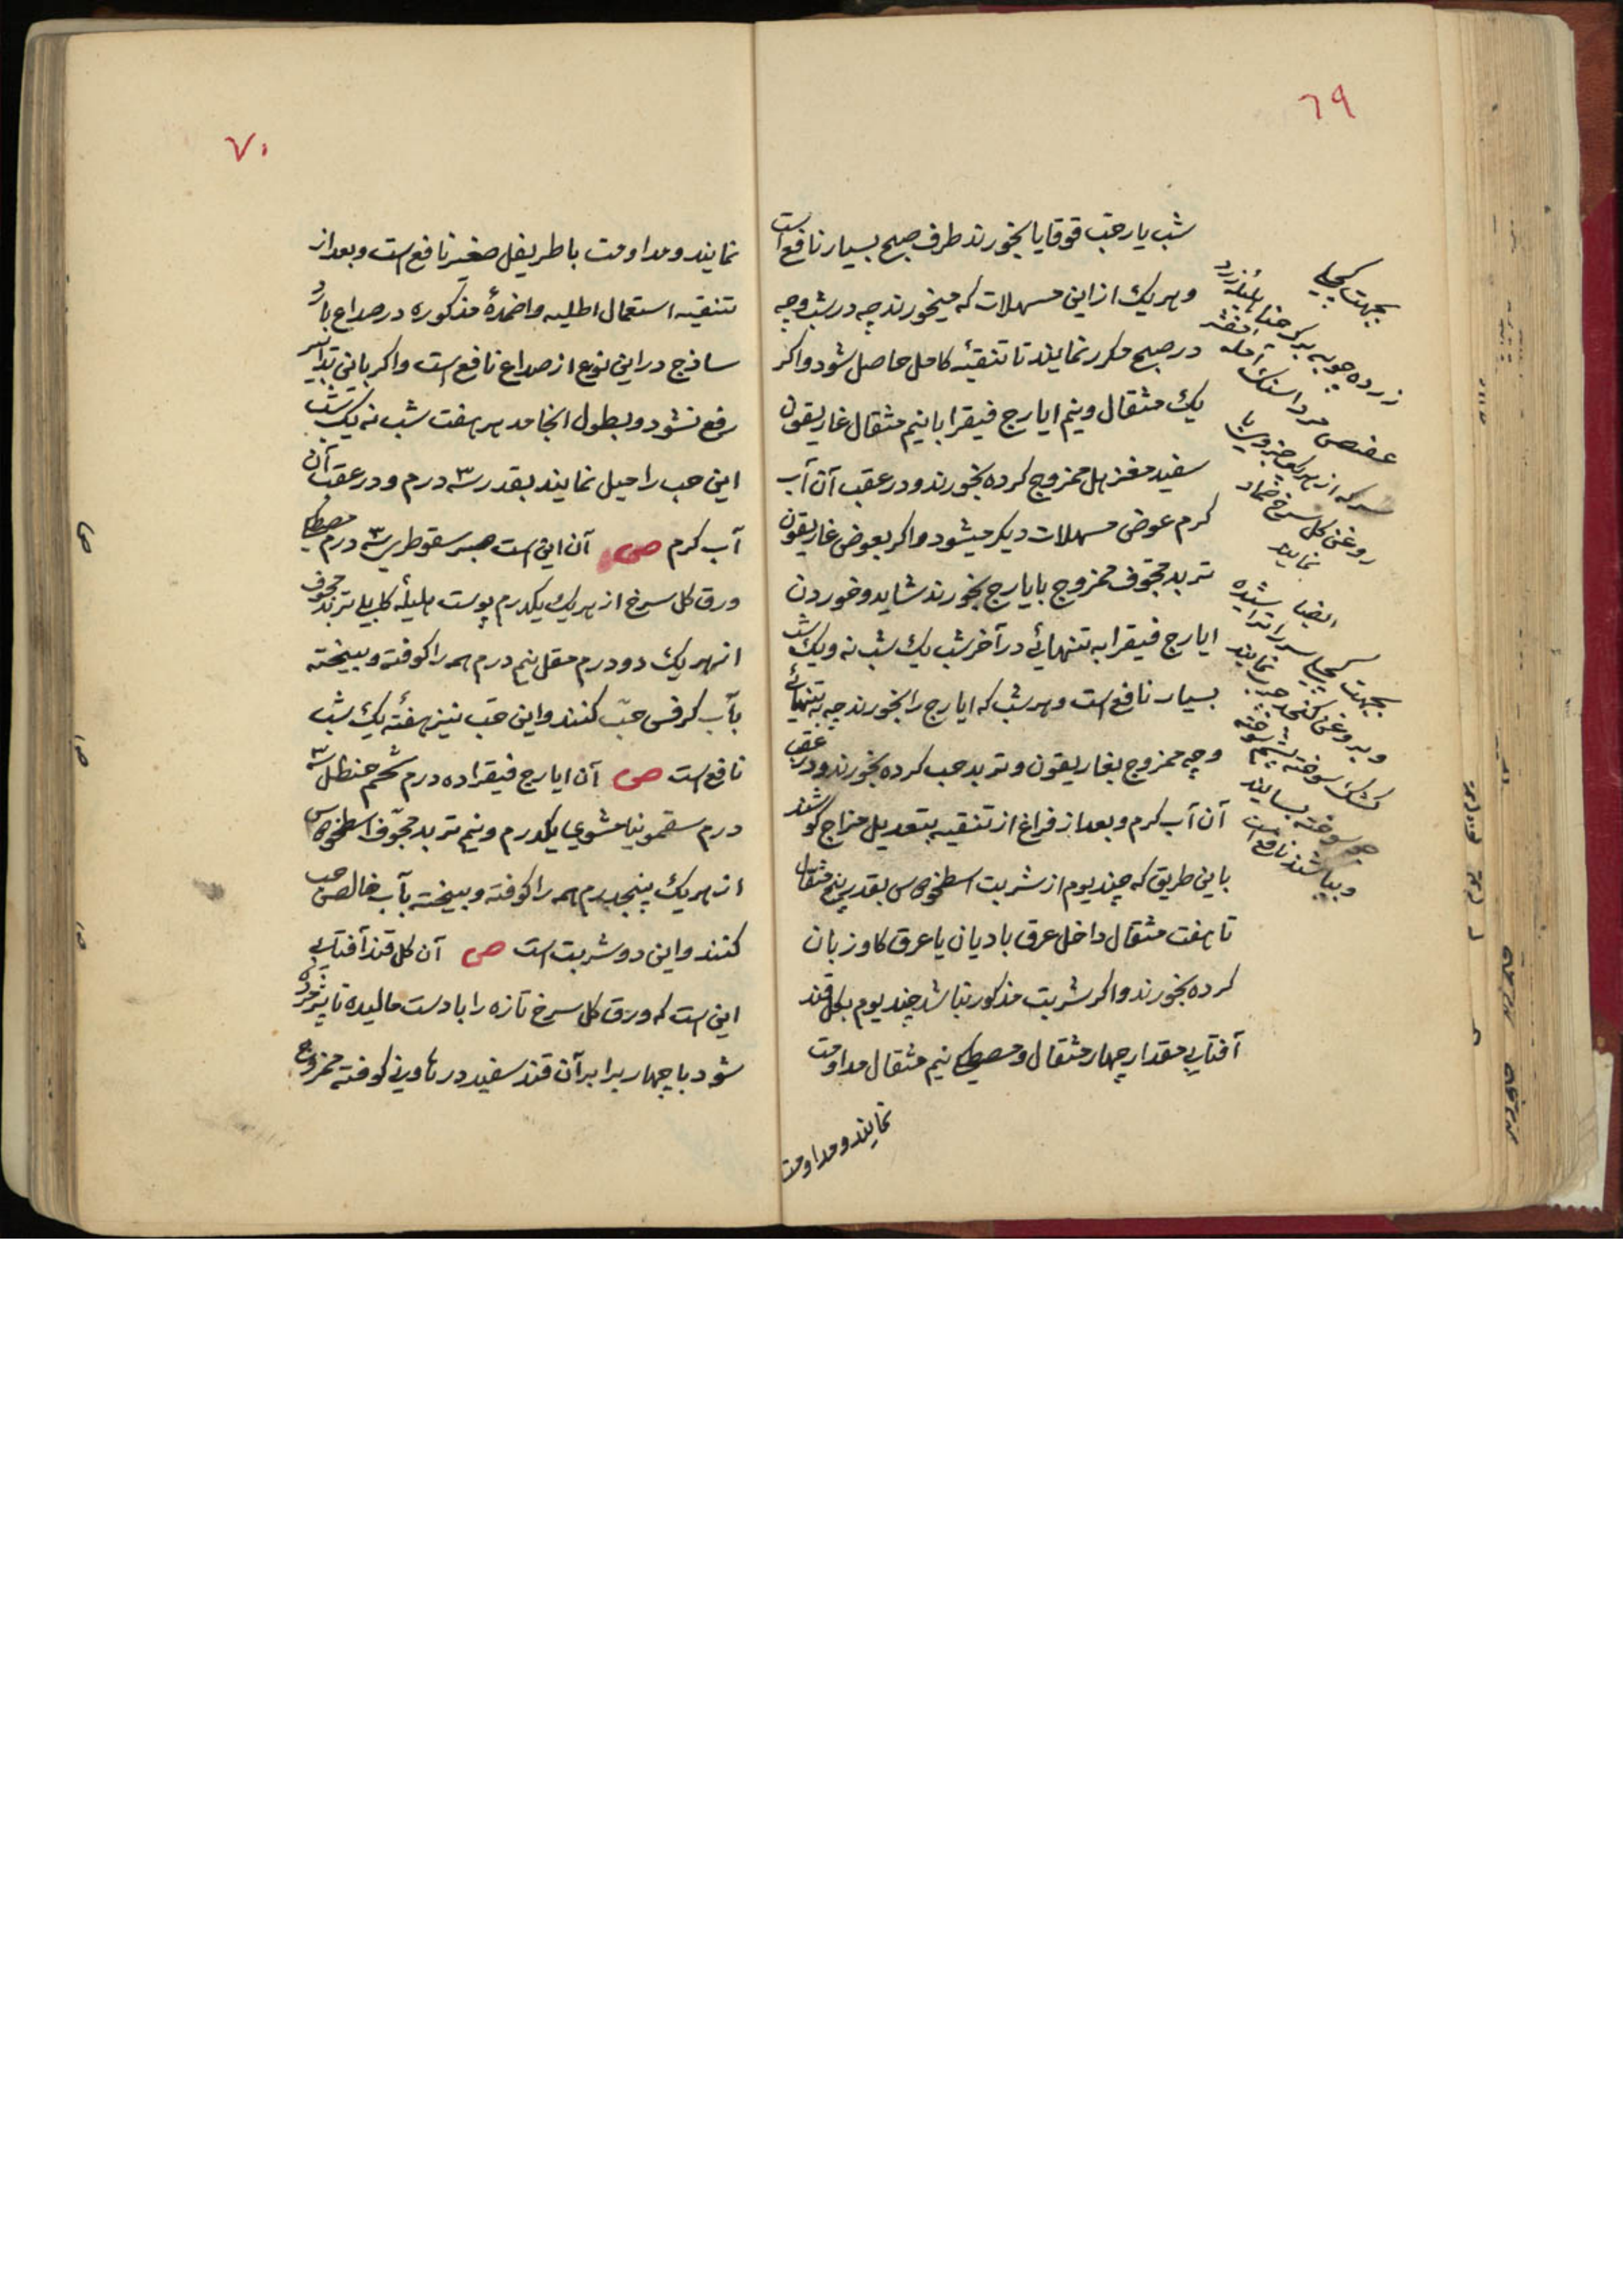 ٦٩
شب یار حب قوقایا بخورند طرف صبح بسیار نافع است
و هریك از این مسهلات که میخورند چه در شب و چه
در صبح مکرر نمایند تا تنقیه کامل حاصل شود و اکر
یك مثقال و نیم ایارج فیقرا با نیم مثقال غاریقون
سفید مغربل ممزوج کرده بخورند و در عقب آن آب
کرم عوض مسهلات دیکر میشود و اکر بعوض غاریقون
تربد مجوف ممزوج بایارج بخورند شاید و خوردن
ایارج فیقرا به تنهائی در آخر شب یك شب نه و یك شب
بسیار نافع است و هر شب که ایارج را بخورند چه به تنهائی
و چه ممزوج بغاریقون و تربد حب کرده بخورند و در عقب
آن آب کرم و بعد از فراغ از تنقیه بتعدیل مزاج کوشند
باین طریق که چند یوم از شربت اسطخودوس بقدر پنج مثقال
تا هفت مثقال داخل عرق بادیان یا عرق کاوزبان
کرده بخورند و اکر شربت مذکور نباشد چند یوم بکل قند
آفتابی مقدار چهار مثقال و مصطکی نیم مثقال مداومت
نمایند و مداومت
بجهت کچلی
زرده چوبه برک حنا هلیله زرد
عفص مرداسنك آمله
سرکه از هر یک جزوی با
روغن کل سرخ ضماد
نمایند
ایضا
بجهت کچلی سر را تراشیده
و بروغن کنجد چرب نمایند
سوخته بسایند
و بپاشند نافع است
٧٠
نمایند و مداومت باطریفل صغیر نافع است و بعد از
تنقیه استعمال اطلیه و اضمدهٔ مذکوره در صداع بارد
ساذج در این نوع از صداع نافع است و اکر باین تدابیر
رفع نشود و بطول انجامد هر هفت شب نه یك شب
این حب را میل نمایند بقدر سه درم و در عقب آن
آب کرم ص آن این است صبر سقوطری ٣ درم مصطکی
ورق کل سرخ از هریك یکدرم پوست هلیلهٔ کابلی تربد مجوف
از هریك دو درم مقل نیم درم همه را کوفته و بیخته
بآب کرفس حب کنند و این حب نیز هفتهٔ یك شب
نافع است ص آن ایارج فیقرا ده درم شحم حنظل سه
درم سقمونیا مشوی یکدرم و نیم تربد مجوف اسطخودوس
از هریك پنجدرم همه را کوفته و بیخته بآب خالص حب
کنند و این دو شربت است ص آن کل قند آفتابی
این است که ورق کل سرخ تازه را با دست مالیده تا پژمرده
شود با چهار برابر آن قند سفید در هاونی کوفته ممزوج